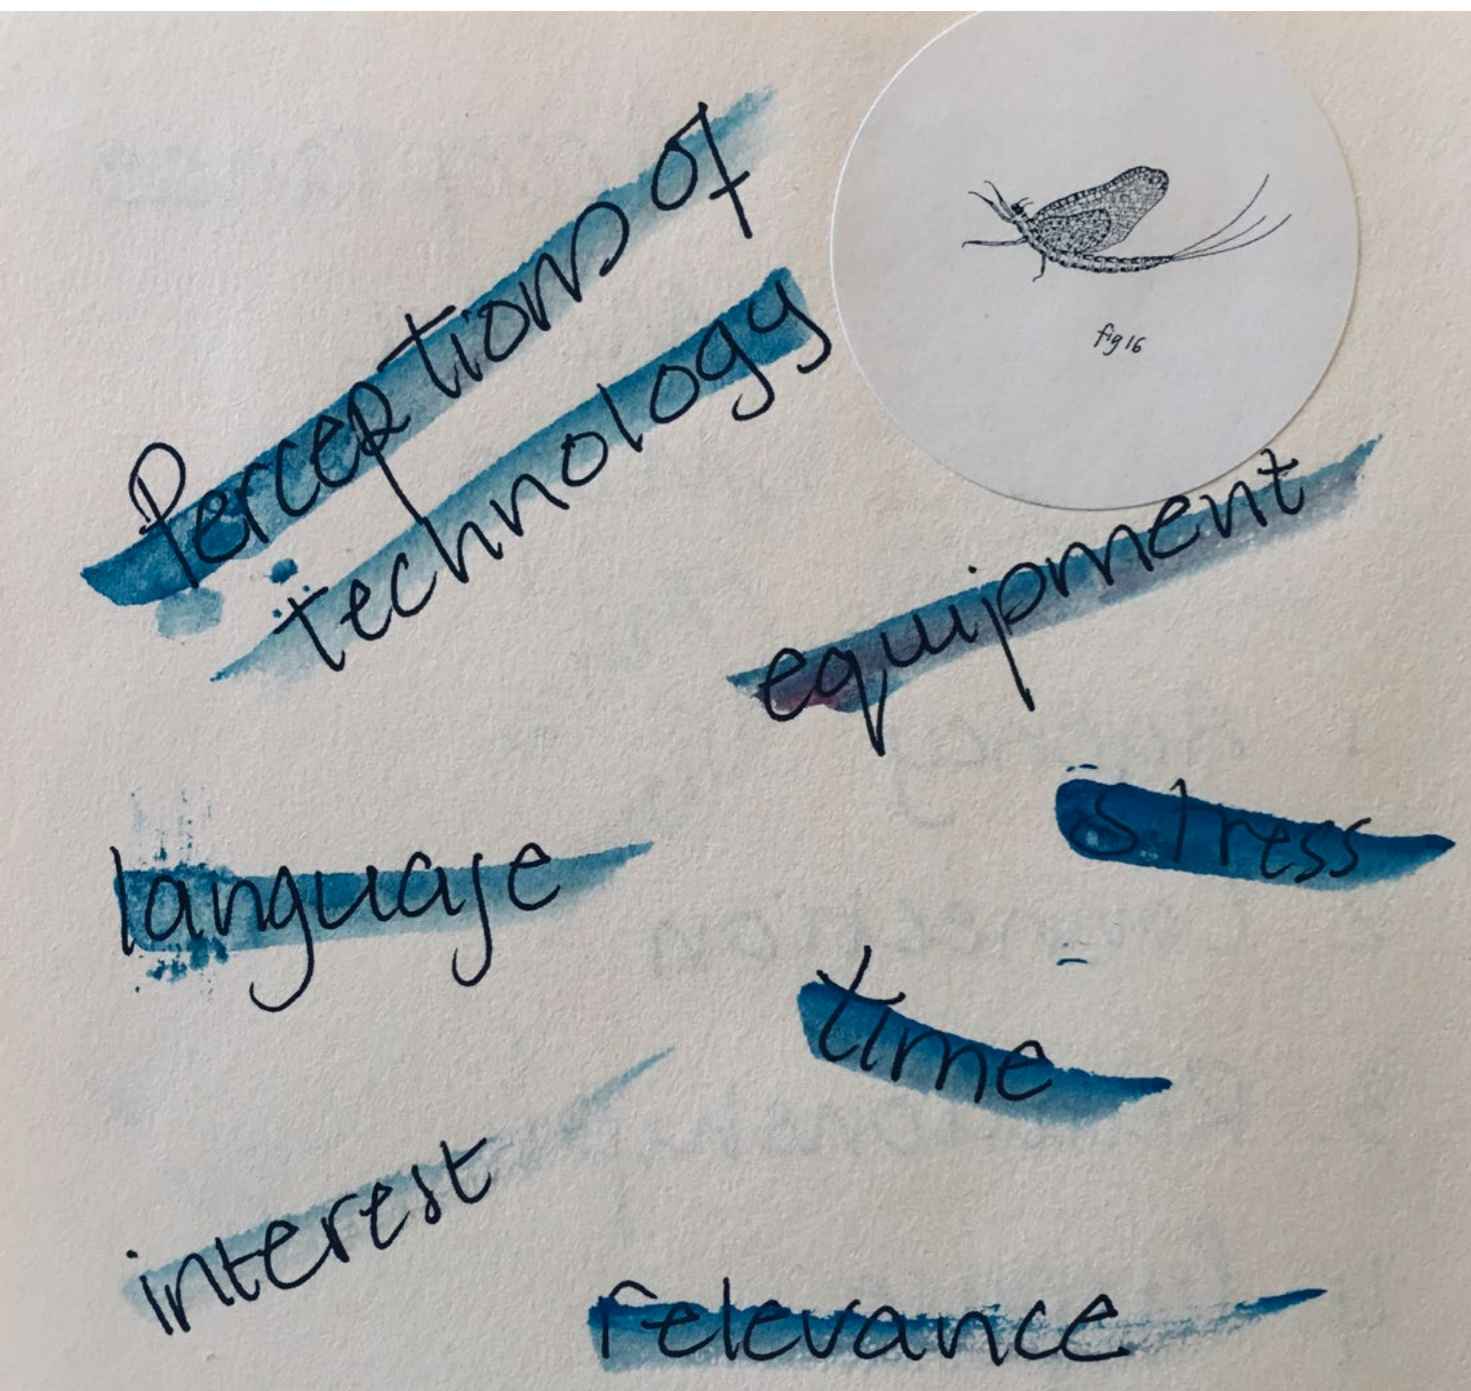 Perceptions of
technology
fig 16
equipment
stress
language
time
interest
relevance